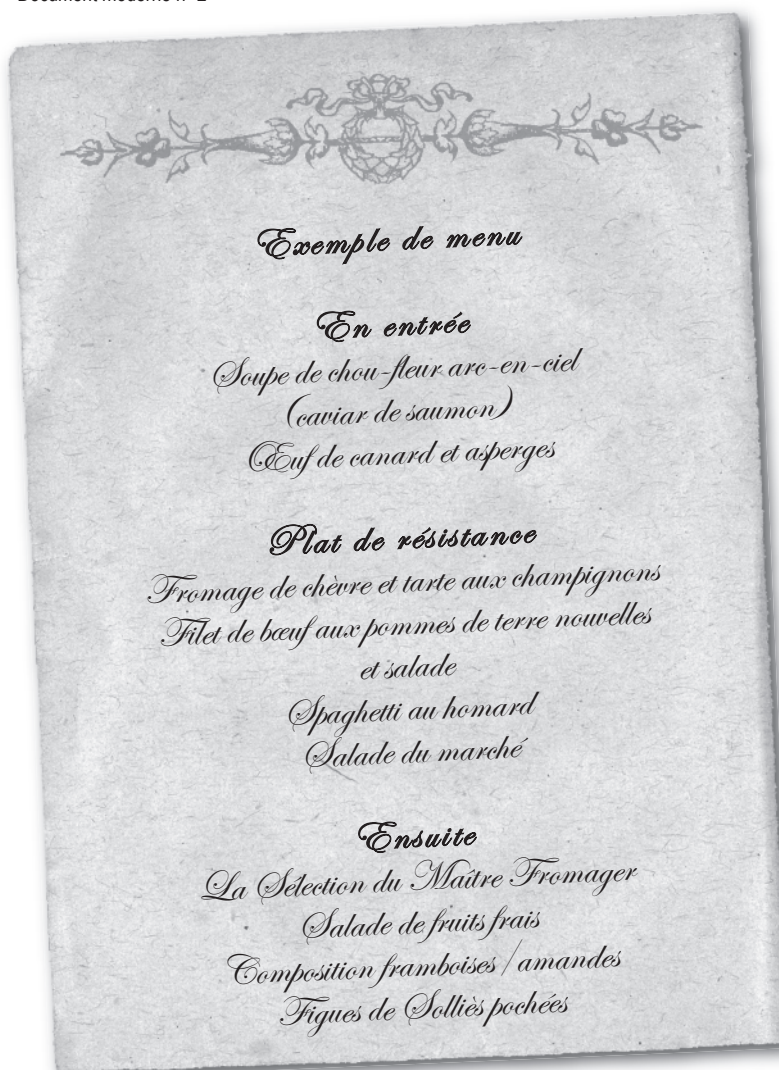 Document moderne n° 2
Exemple de menu
En entrée
Soupe de chou-fleur arc-en-ciel
(caviar de saumon)
Œuf de canard et asperges
Plat de résistance
Fromage de chèvre et tarte aux champignons
Filet de bœuf aux pommes de terre nouvelles
et salade
Spaghetti au homard
Salade du marché
Ensuite
La Sélection du Maître Fromager
Salade de fruits frais
Composition framboises / amandes
Figues de Solliès pochées